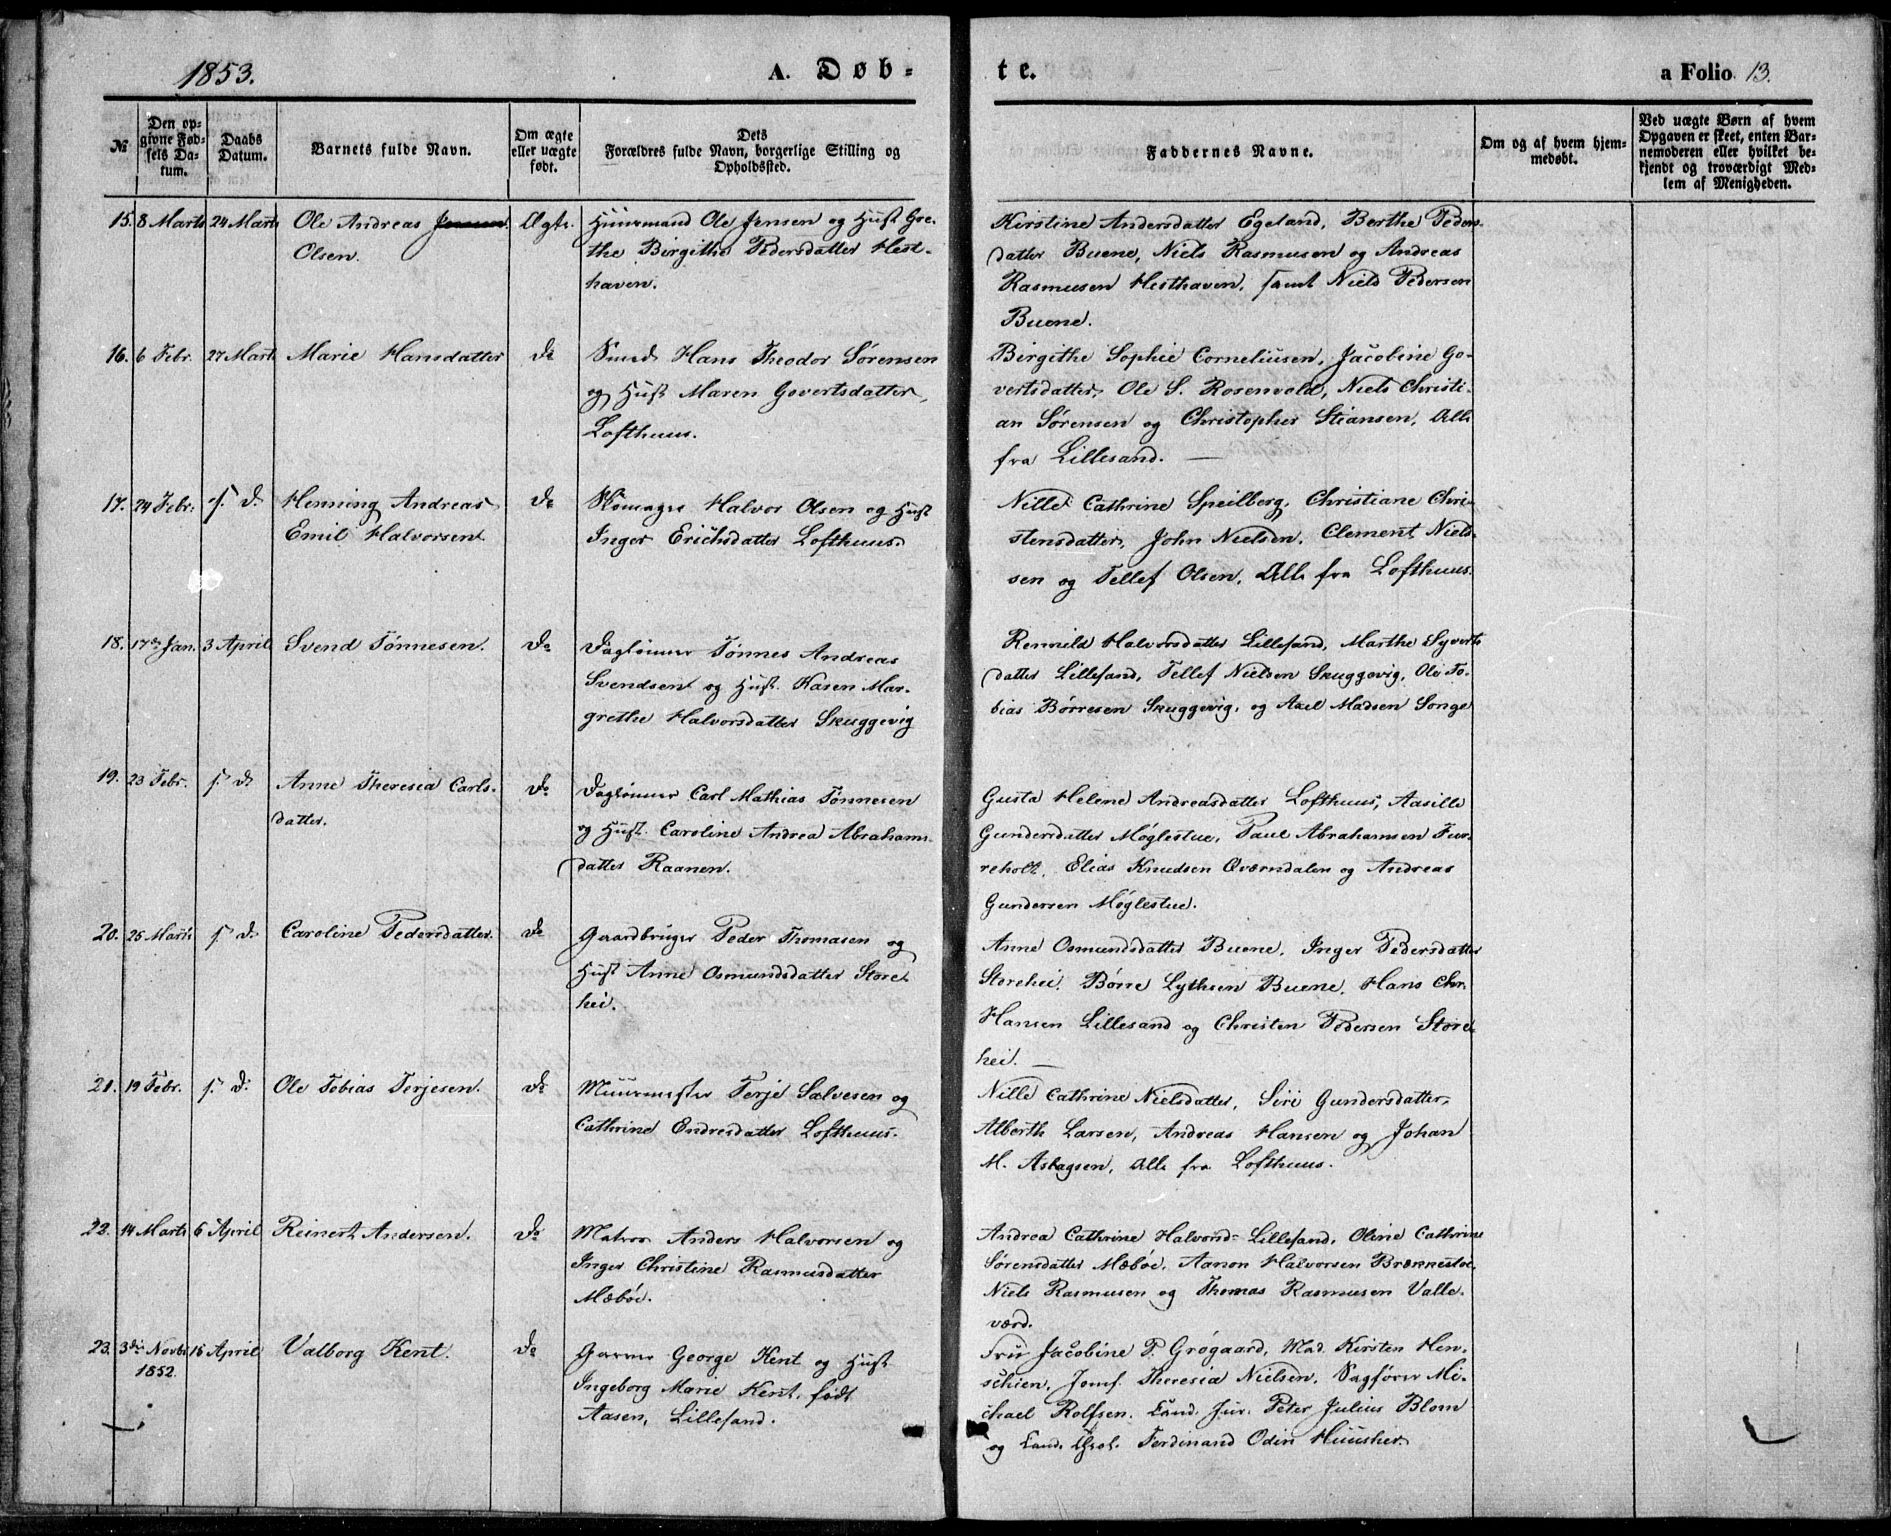 1853.
A. Døb-
te.
a Folio 13.
No
Den op-
givne Fød-
sels Da-
tum.
Daabs
Datum.
Barnets fulde Navn.
Om ægte
eller uægte
født.
Dets
Forældres fulde Navn, borgerlige Stilling og
Opholdssted.
Faddernes Navne.
Om og af hvem hjem-
medøbt.
Ved uægte Børn af hvem
Opgaven er skeet, enten Bar-
nemoderen eller hvilket be-
kjendt og troværdigt Med-
lem af Menigheden.
15. 8 Marts 24 Marts Ole Andreas Jensen
Olsen.
Ægte.
Huusmand Ole Jensen og Hust. Gre-
the Birgithe Pedersdatter Hest-
haven.
Kirstine Andersdatter Egeland, Berthe Peders-
datter Buene, Niels Rasmusen og Andreas
Rasmusen Hesthaven, samt Niels Pedersen
Buene.
16. 6 Febr. 27 Marts Marie Hansdatter
Do
Smed Hans Theodor Sørensen
og Hust Maren Govertsdatter,
Lofthuus.
Birgithe Sophie Corneliusen, Jacobine Go-
vertsdatter, Ole S. Rosenvold, Niels Christi-
an Sørensen og Christopher Stiansen, Alle
fra Lillesand.
17. 24 Febr. s. D. Henning Andreas
Emil Halvorsen
Do
Skomager Halvor Olsen og Hust
Inger Erichsdatter Lofthuus.
Nille Cathrine Speilberg, Christiane Chri-
stensdatter, John Nielsen, Clement Niel-
sen og Tellef Olsen, Alle fra Lofthuus.
18. 17de Jan. 3 April Svend Tønnesen.
Do
Daglønner Tønnes Andreas
Svendsen og Hust. Karen Mar-
grethe Halvorsdatter Skuggevig
Rennild Halvorsdatter Lillesand, Marthe Syverts
datter Lillesand, Tellef Nielsen Skuggevig, Ole To-
bias Børresen Skuggevig, og Axel Madsen Songe
19. 23 Febr. s. D. Anne Theresia Carls-
datter.
Do
Daglønner Carl Mathias Tønnesen
og Hust. Caroline Andrea Abrahams-
datter Raanen.
Gusta Helene Andreasdatter Lofthuus, Aasille
Gundersdatter Møglestue, Paul Abrahamsen Fur-
reholt, Elias Knudsen Qværndalen og Andreas
Gundersen Møglestue.
20. 25 Marts s. D. Caroline Pedersdatter.
Do
Gaardbruger Peder Thomasen og
Hust Anne Osmundsdatter Store-
hei.
Anne Osmundsdatter Buene, Inger Pedersdatter
Storehei, Børre Lythsen Buene, Hans Chr.
Hansen Lillesand og Christen Pedersen Store-
hei.
21. 19 Febr. s. D. Ole Tobias Terjesen.
Do
Muurmester Terje Salvesen og
Cathrine Endresdatter Lofthuus.
Nille Cathrine Nielsdatter, Siri Gundersdatter,
Alberth Larsen, Andreas Hansen og Johan
M. Aslagsen, Alle fra Lofthuus.
22. 14 Marts 6 April Reinert Andersen.
Do
Matros Anders Halvorsen og
Inger Christine Rasmusdatter
Mæbøe.
Andrea Cathrine Halvorsd. Lillesand, Oline Cathrine
Sørensdatter Mæbøe, Aanon Halvorsen Brønnestøe
Niels Rasmusen og Thomas Rasmusen Valle-
værd.
23. 3die Novbr 16 April Valborg Kent.
1852.
Do
Garver George Kent og Hust
Ingeborg Marie Kent, født
Aasen, Lillesand.
Fru Jacobine P. Grøgaard, Mad. Kirsten Hen-
schien, Jomf. Theresia Nielsen, Sagfører Mi-
chael Rolfsen, Cand. Jur. Peter Julius Blom
og Cand. Theol. Ferdinand Odin